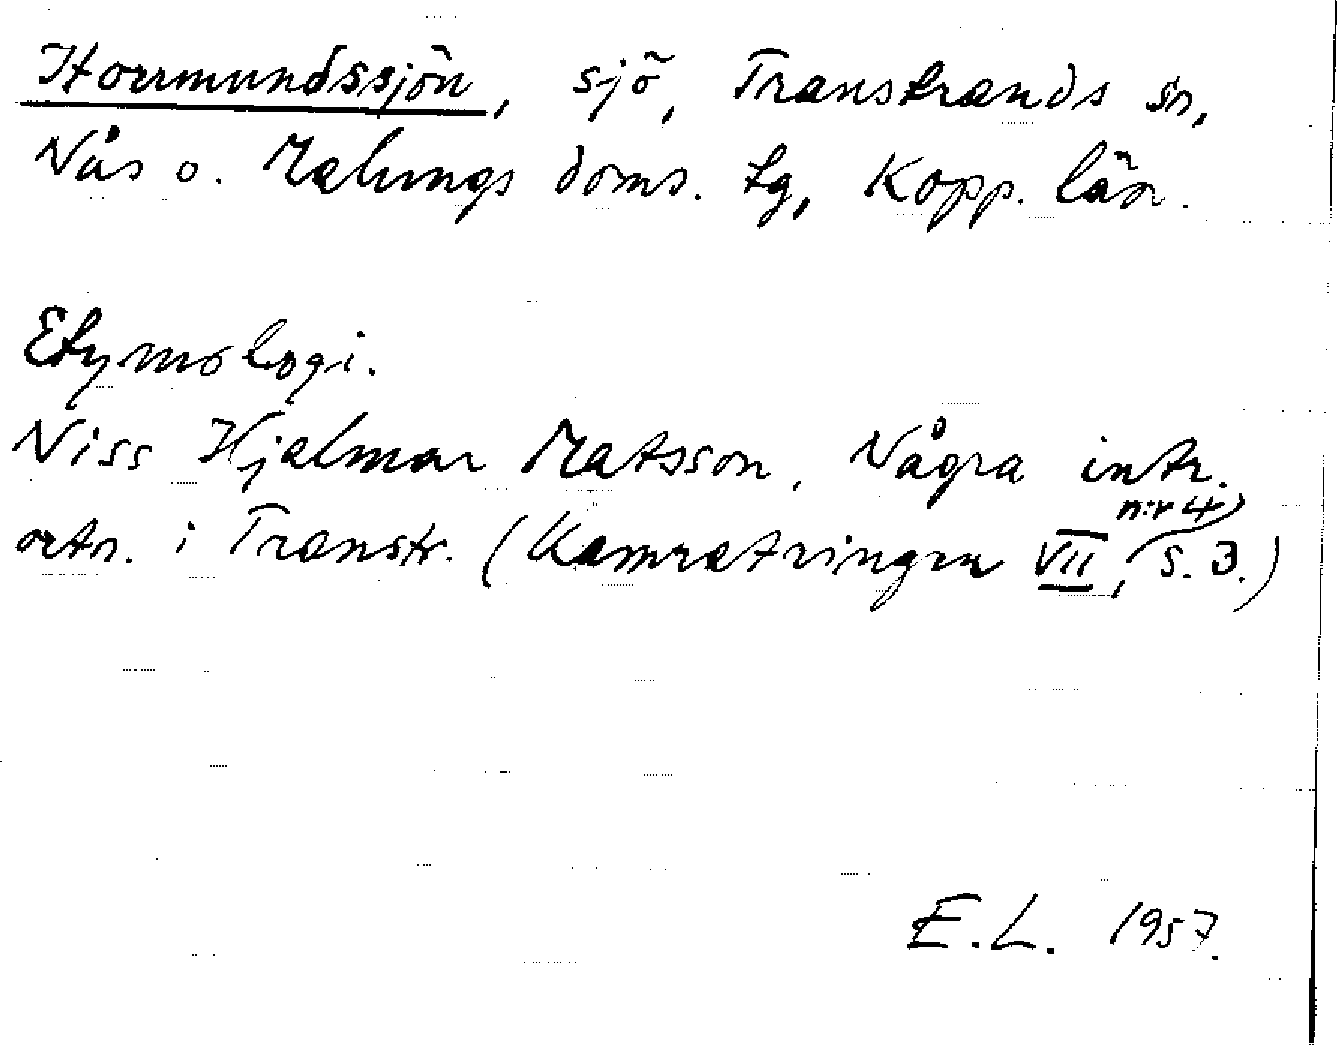 Horrmundssjön, sjö, Transtrands sn,
Nås o. Malungs doms. tg, Kopp. län.
Etymologi.
Niss Hjalmar Matsson, Några intr.
ortn. i Transtr. (Kamratringen VII, n:r 4, s. 3.)
E.L. 1957.